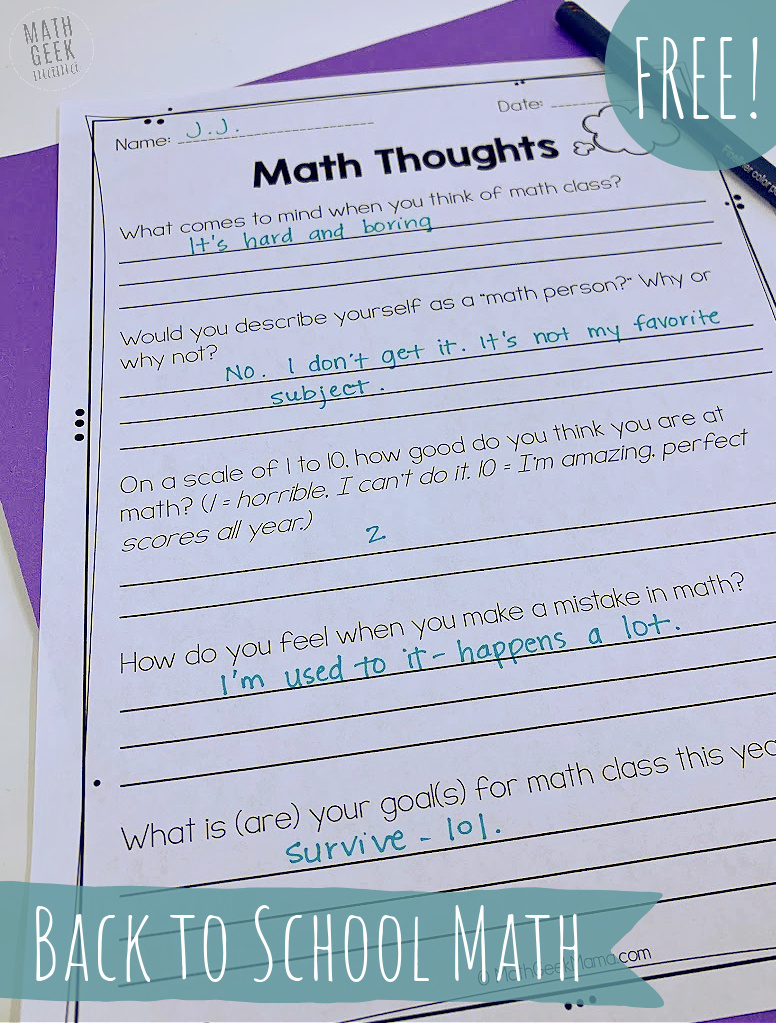 MATH
GEEK
mama
FREE!
Name: J.J.
Date:
Math Thoughts
What comes to mind when you think of math class?
It's hard and boring
Would you describe yourself as a "math person?" Why or
why not?
No. I don't get it. It's not my favorite
subject.
On a scale of 1 to 10, how good do you think you are at
math? (1 = horrible, I can't do it, 10 = I'm amazing, perfect
scores all year.)
2
How do you feel when you make a mistake in math?
I'm used to it - happens a lot.
What is (are) your goal(s) for math class this
survive - lol.
BACK TO SCHOOL MATH
© MathGeekMama.com